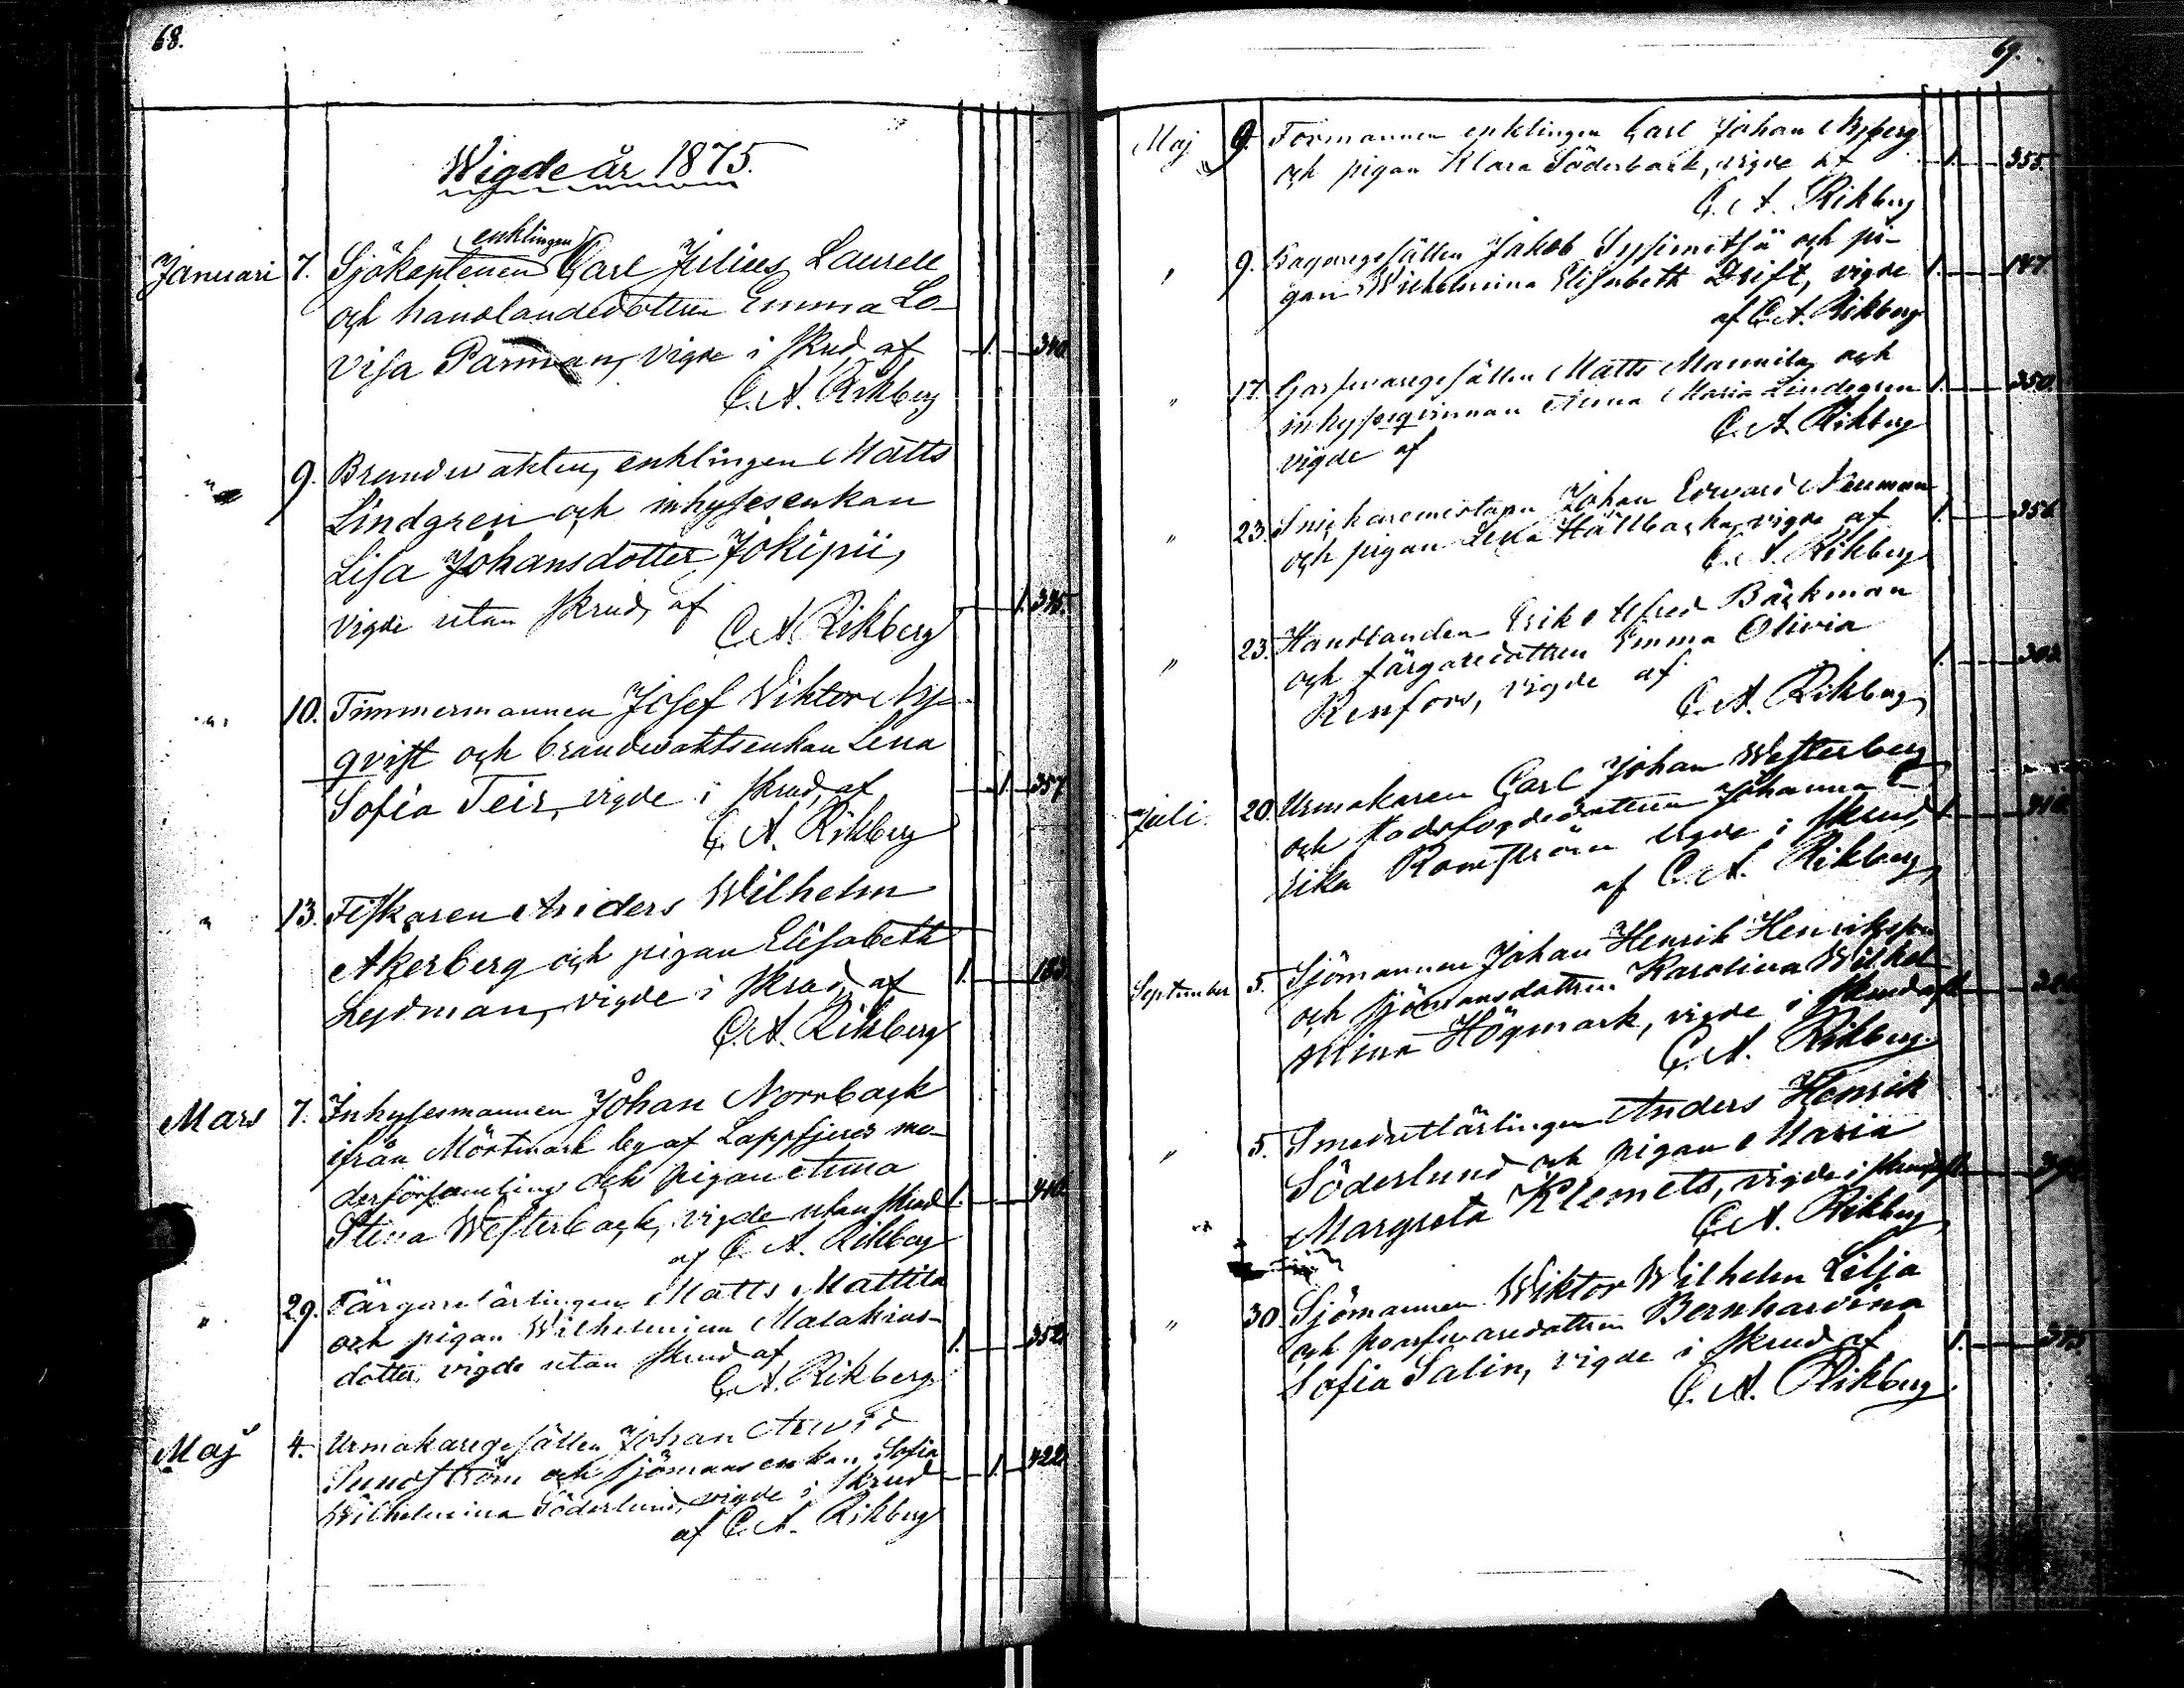 68.
Wigde år 1875.
enklingen
Januari 7. Sjökaptenen Carl Julius Laurell
och handlandedottren Emma Lo-
visa Parman, vigde i skrud af 1. 340.
C. A. Rikberg
" 9. Brandvakten, enklingen Matts
Lindgren och inhysesenkan
Lisa Johansdotter Jokipii,
vigde utan skrud, af 1.
C. A. Rikberg
" 10. Timmermannen Josef Viktor Ny-
qvist och brandvaktsenkan Lena
Sofia Teir, vigde i skrud, af 1. 357
C. A. Rikberg
" 13. Fiskaren Anders Wilhelm
Åkerberg och pigan Elisabeth
Lydman, vigde i skrud af 1. 183.
C. A. Rikberg
Mars 7. Inhysesmannen Johan Norrback
ifrån Mörtmark by af Lappfjerds mo-
derförsamling och pigan Anna
Stina Westerback, vigde utan skrud 1.
af C. A. Rikberg
" 29. Färgarelärlingen Matts Mattila
och pigan Wilhelmina Malakias-
dotter, vigde utan skrud af 1. 352
C. A. Rikberg
Maj 4. Urmakaregesällen Johan Arvid
Sundström och sjömansenkan Sofia 1. 422
Wilhelmina Söderlund, vigde i skrud
af C. A. Rikberg
69.
Maj 9. Formannen enklingen Carl Johan Nyberg
och pigan Klara Söderback, vigde af 1. 355.
C. A. Rikberg
" 9. Bagaregesällen Jakob och pi-
gan Wilhelmina Elisabeth Drift, vigde 1. 147
af C. A. Rikberg
" 17. Garfvaregesällen Matts Mannila och
inhysesqvinnan Anna Maria Lindegren 1. 350.
vigde af C. A. Rikberg
" 23. Snickaremästaren Johan Edvard Neuman
och pigan Lena Hällback, vigde af 1. 256
C. A. Rikberg
" 23. Handlanden Erik Alfred Bäckman
och färgaredottren Emma Olivia
Renfors, vigde af 1. 302
C. A. Rikberg
Juli. 20. Urmakaren Carl Johan Westerberg
och stadsfogdedottren Johanna E-
rika Romström vigde i skrud, 1. 410.
af C. A. Rikberg
September 5. Sjömannen Johan Henrik Henriksson
och sjömansdottren Karolina Wilhel-
mina Högmark, vigde i skrud af 1.
C. A. Rikberg
" 5. Smedslärlingen Anders Henrik
Söderlund och pigan Maria
Margreta Klemets, vigde i skrud af 1.
C. A. Rikberg
" 30. Sjömannen Wiktor Wilhelm Lilja
och garfvaredottren Bernhardina
Sofia Salin, vigde i skrud af 1.
C. A. Rikberg